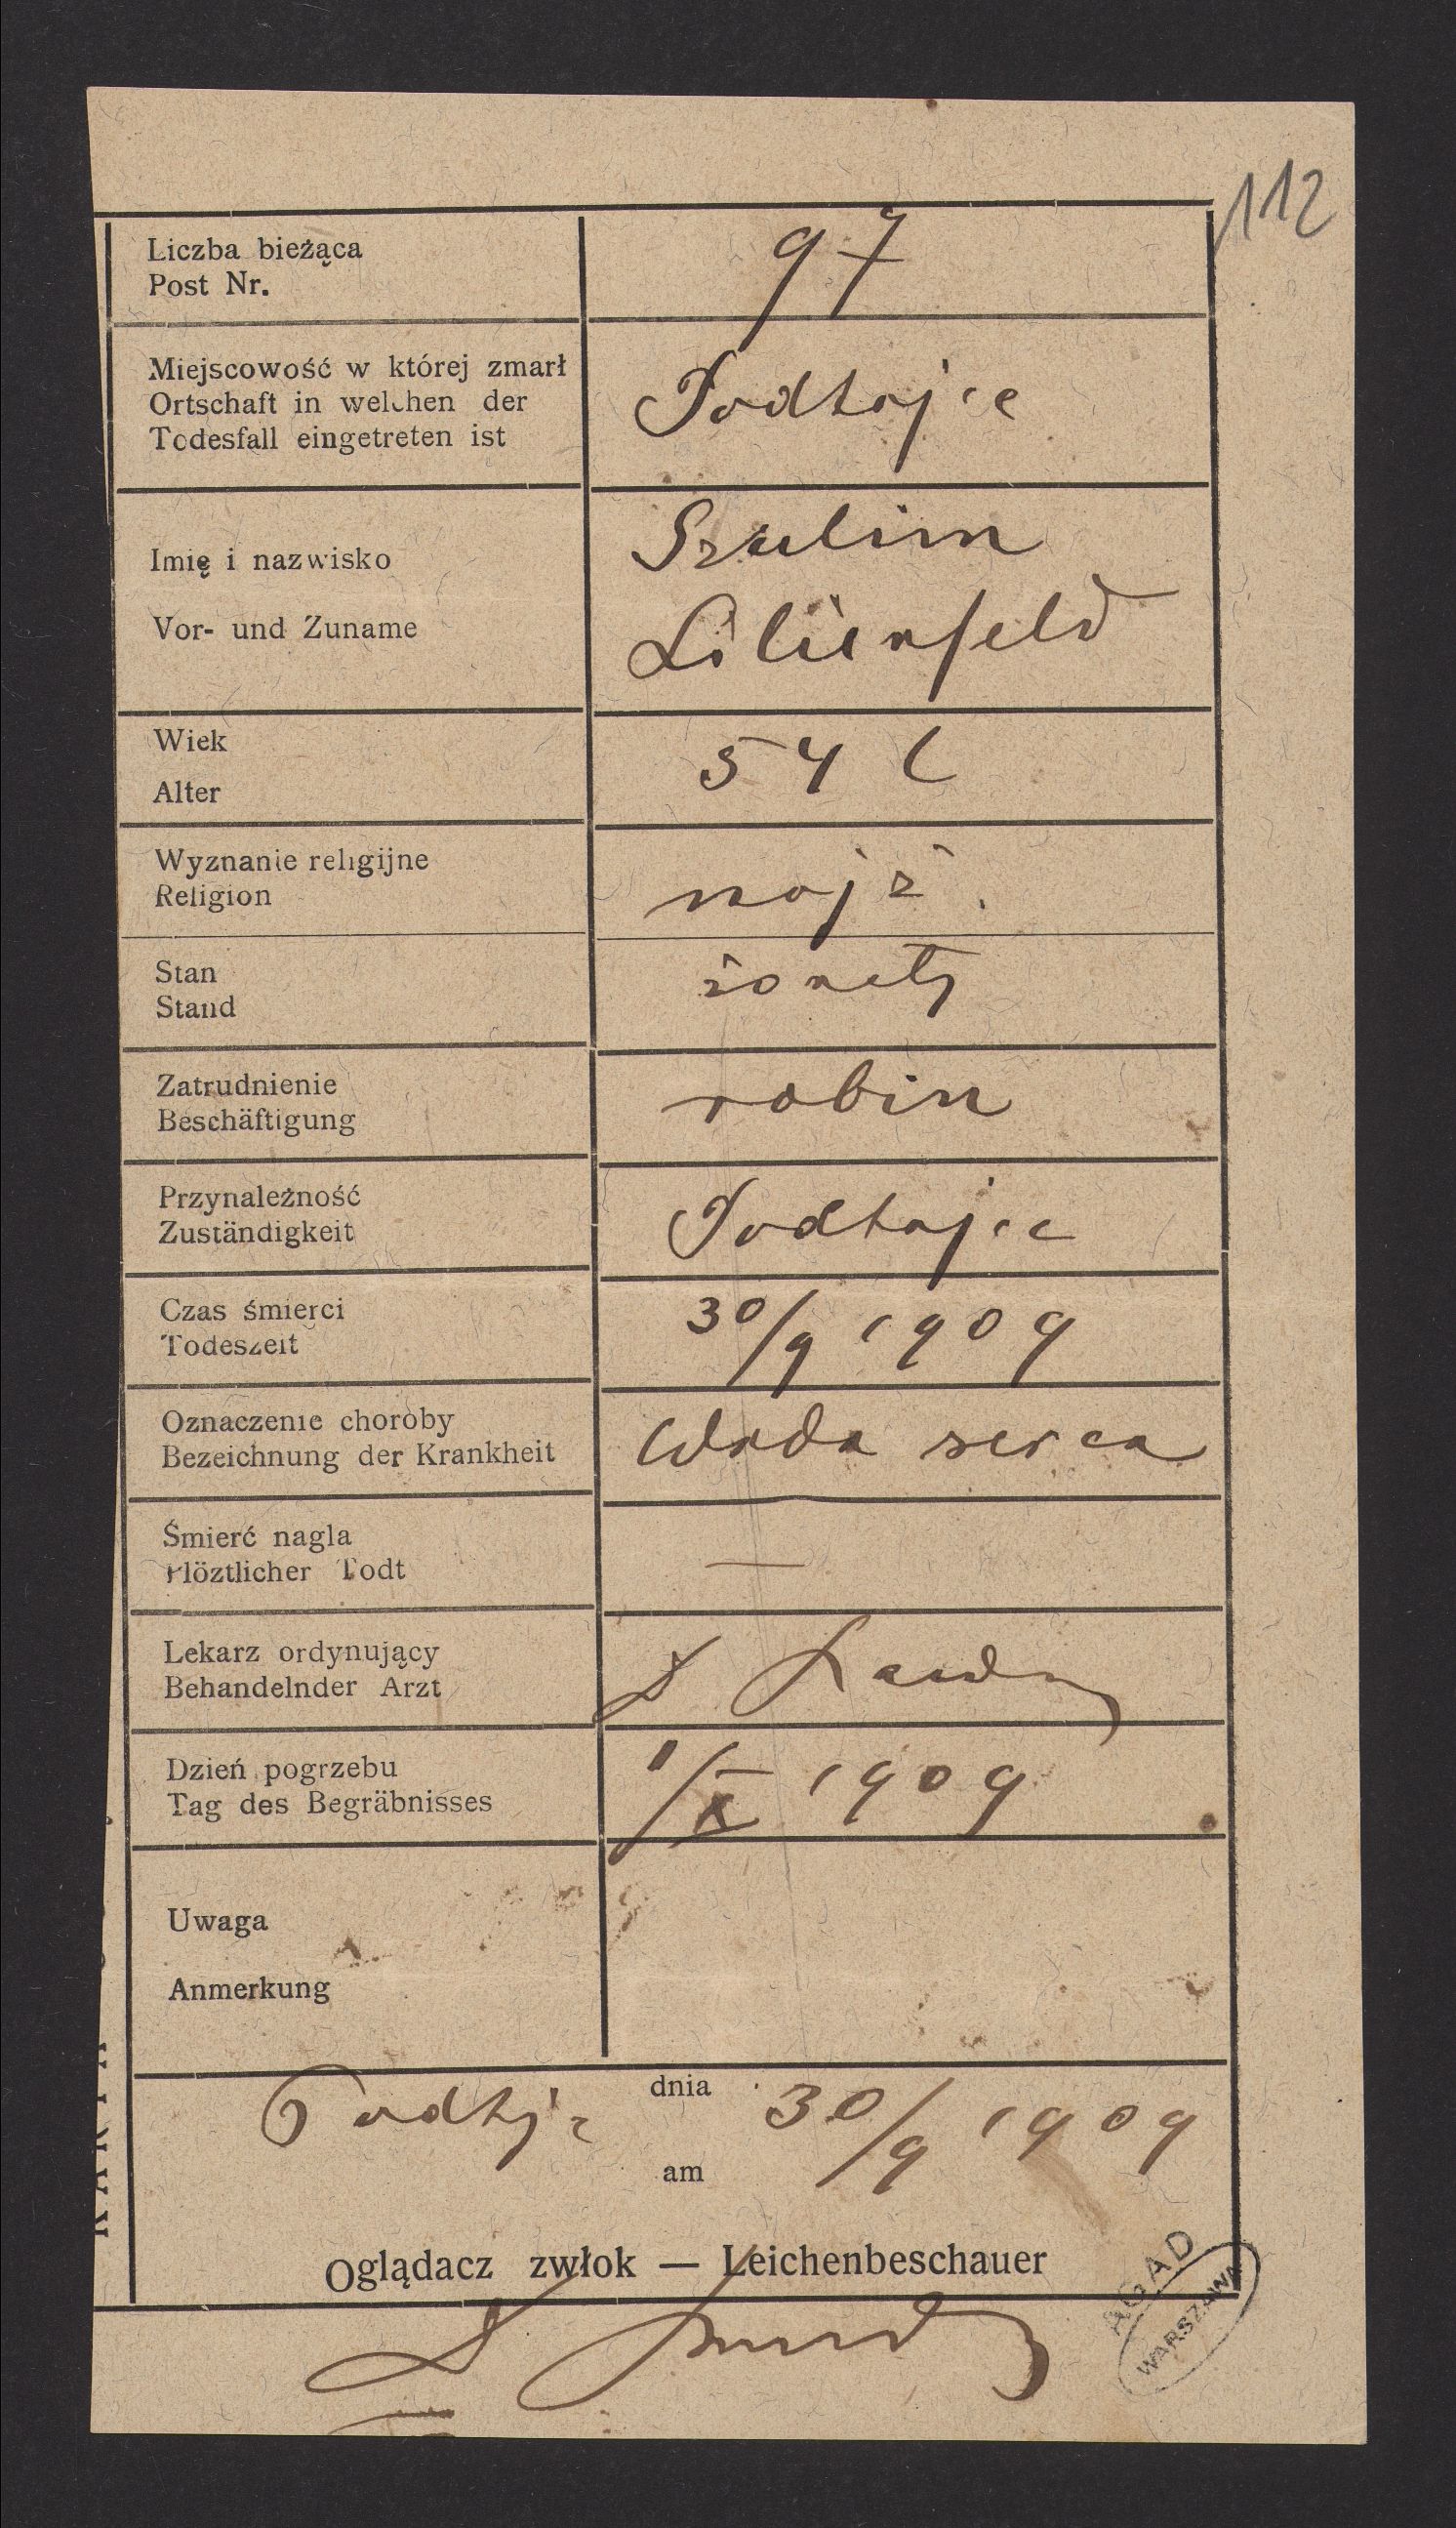 112
Liczba bieżąca
Post Nr.
97
Miejscowość w której zmarł
Ortschaft in welchen der
Todesfall eingetreten ist
Podhajce
Imię i nazwisko
Vor- und Zuname
Szulim
Lilienfeld
Wiek
Alter
54 l
Wyznanie religijne
Religion
mojż.
Stan
Stand
żonaty
Zatrudnienie
Beschäftigung
rabin
Przynależność
Zuständigkeit
Podhajce
Czas śmierci
Todeszeit
30/9 1909
Oznaczenie choroby
Bezeichnung der Krankheit
Wada serca
Śmierć nagla
Plöztlicher Todt
—
Lekarz ordynujący
Behandelnder Arzt
Dzień pogrzebu
Tag des Begräbnisses
1/X 1909
Uwaga
Anmerkung
Podhjc dnia 30/9 1909
am
Oglądacz zwłok — Leichenbeschauer
AGAD
WARSZAWA